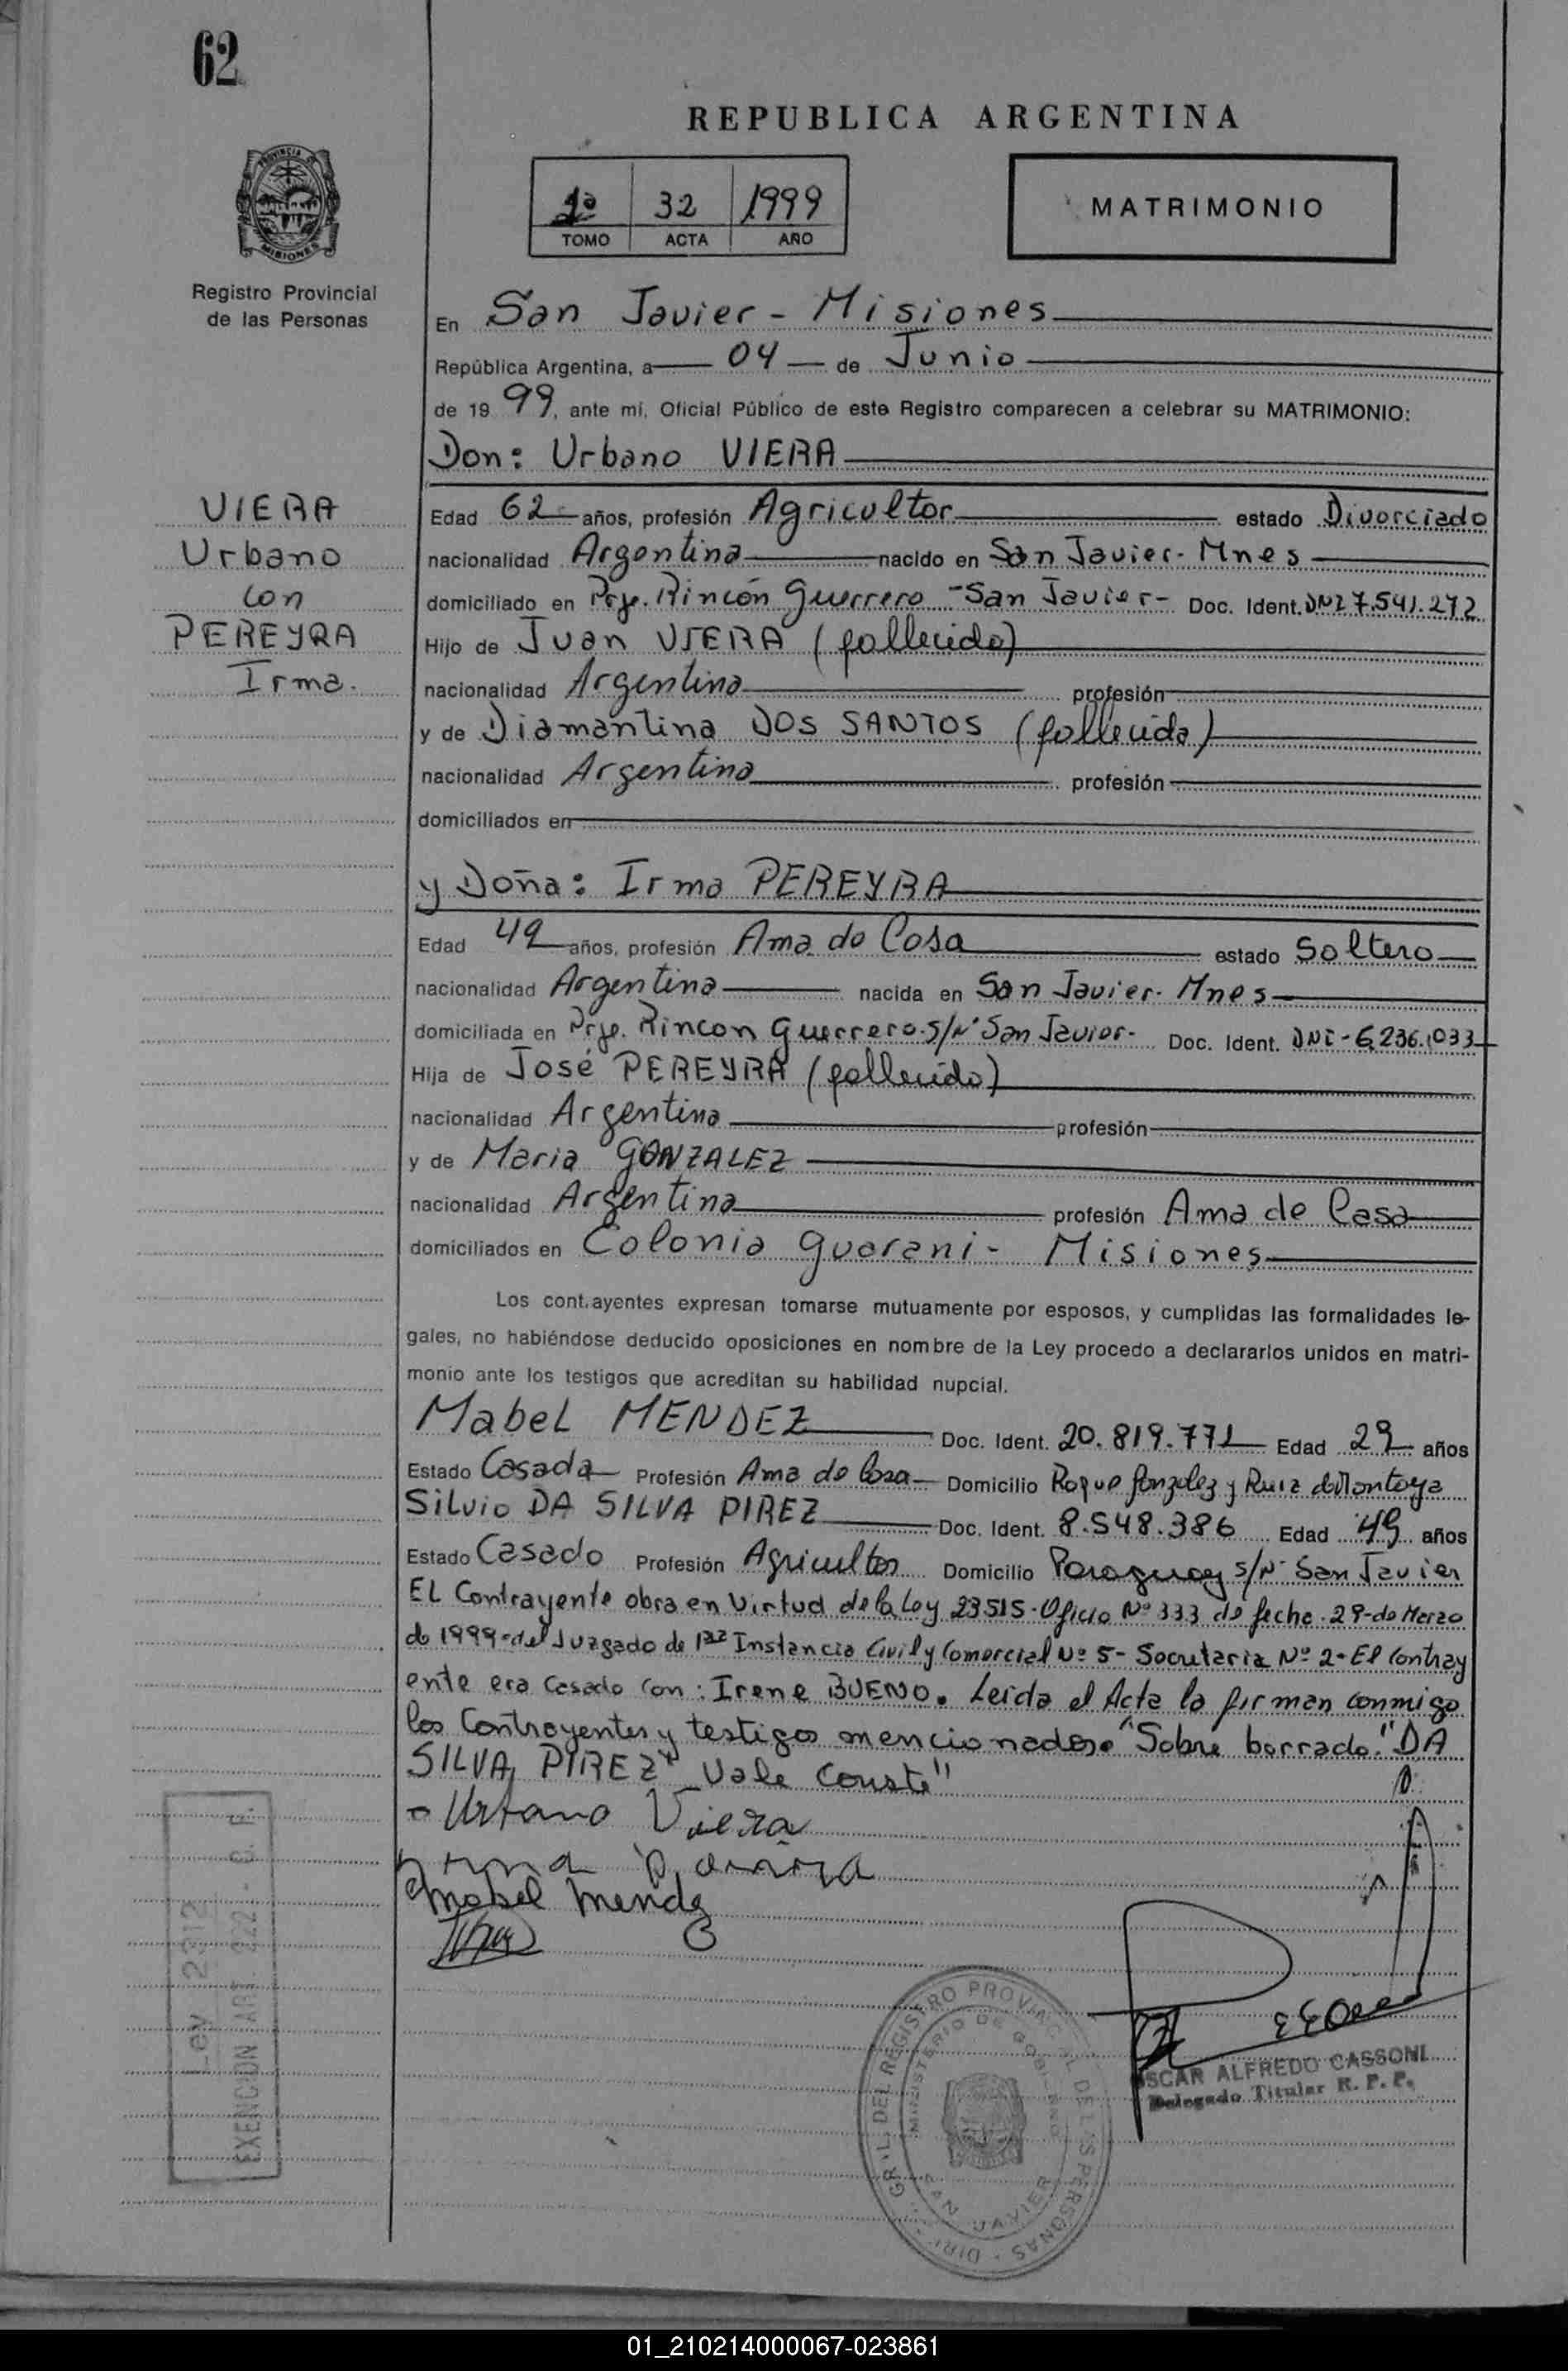 62
REPUBLICA ARGENTINA
PROVINCIA DE MISIONES
1º 32 1999
TOMO ACTA AÑO
MATRIMONIO
Registro Provincial
de las Personas
En San Javier - Misiones
República Argentina, a 04 de Junio
de 19 99, ante mí, Oficial Público de este Registro comparecen a celebrar su MATRIMONIO:
Don: Urbano VIERA
VIERA
Urbano
con
PEREYRA
Irma.
Edad 62 años, profesión Agricultor estado Divorciado
nacionalidad Argentina nacido en San Javier - Mnes
domiciliado en Prje. Rincón Guerrero - San Javier - Doc. Ident. DNI 7.541.272
Hijo de Juan VIERA (fallecido)
nacionalidad Argentina profesión
y de Diamantina DOS SANTOS (fallecida)
nacionalidad Argentina profesión
domiciliados en
y Doña: Irma PEREYRA
Edad 49 años, profesión Ama de Casa estado Soltera
nacionalidad Argentina nacida en San Javier - Mnes
domiciliada en Prje. Rincon Guerrero - S/Nº San Javier - Doc. Ident. DNI - 6.236.033
Hija de José PEREYRA (fallecido)
nacionalidad Argentina profesión
y de Maria GONZALEZ
nacionalidad Argentina profesión Ama de Casa
domiciliados en Colonia Guarani - Misiones
Los contrayentes expresan tomarse mutuamente por esposos, y cumplidas las formalidades le-
gales, no habiéndose deducido oposiciones en nombre de la Ley procedo a declararlos unidos en matri-
monio ante los testigos que acreditan su habilidad nupcial.
Mabel MENDEZ Doc. Ident. 20.819.771 Edad 29 años
Estado Casada Profesión Ama de Casa Domicilio Roque Gonzalez y Ruiz de Montoya
Silvio DA SILVA PIREZ Doc. Ident. 8.548.386 Edad 49 años
Estado Casado Profesión Agricultor Domicilio Paraguay S/Nº San Javier
El Contrayente obra en Virtud de la Ley 23515 - Oficio Nº 333 de fecha 29 - de Marzo
de 1999 - del Juzgado de 1ra Instancia Civil y Comercial Nº 5 - Secretaria Nº 2 - El Contray
ente era Casado con: Irene BUENO. Leida el Acta la firman conmigo
los Contrayentes y testigos mencionados. "Sobre borrado." DA
SILVA PIREZ" Vale Conste"
Urbano Viera
Mabel Mendez
Ley 2312
EXENCION ART. 322
DIR. GRAL. DEL REGISTRO PROVINCIAL DE LAS PERSONAS
MINISTERIO DE GOBIERNO
SAN JAVIER
OSCAR ALFREDO CASSONI
Delegado Titular R. P. P.
01_210214000067-023861